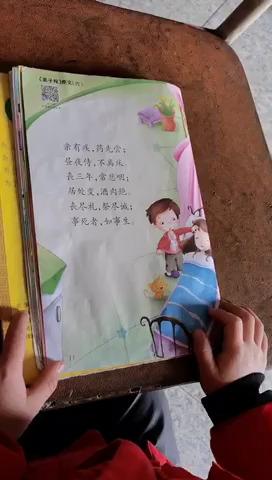 《弟子规》原文(六)
亲有疾,药先尝;
昼夜侍,不离床。
丧三年,常悲咽;
居处变,酒肉绝。
丧尽礼,祭尽诚;
事死者,如事生。